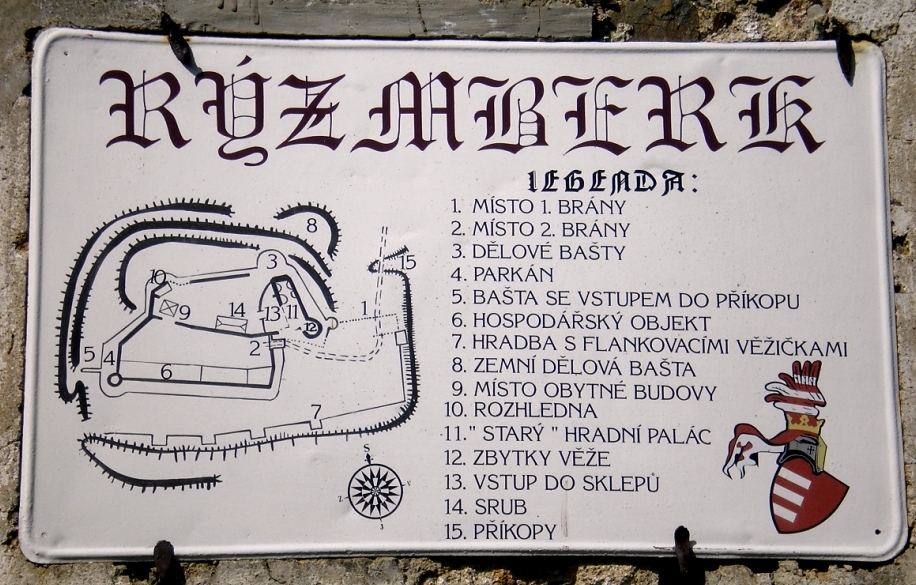 RÝZMBERK
LEGENDA:
1. MÍSTO 1. BRÁNY
2. MÍSTO 2. BRÁNY
3. DĚLOVÉ BAŠTY
4. PARKÁN
5. BAŠTA SE VSTUPEM DO PŘÍKOPU
6. HOSPODÁŘSKÝ OBJEKT
7. HRADBA S FLANKOVACÍMI VĚŽIČKAMI
8. ZEMNÍ DĚLOVÁ BAŠTA
9. MÍSTO OBYTNÉ BUDOVY
10. ROZHLEDNA
11." STARÝ " HRADNÍ PALÁC
12. ZBYTKY VĚŽE
13. VSTUP DO SKLEPŮ
14. SRUB
15. PŘÍKOPY
8
3
15
10
9
14
13
11
12
1
2
5
4
6
7
S
Z
V
J